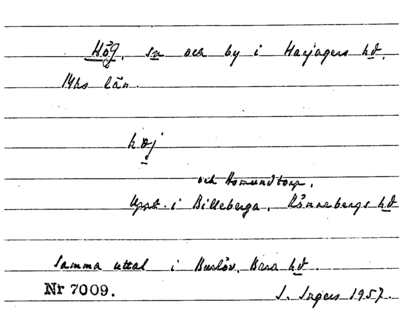 Hög, sn och by i Harjagers hd,
Mhs län.
höj
och Asmundtorp,
Uppt. i Billeberga, Rönnebergs hd
Samma uttal i Burlöv, Bara hd.
Nr 7009.
I. Ingers 1957.